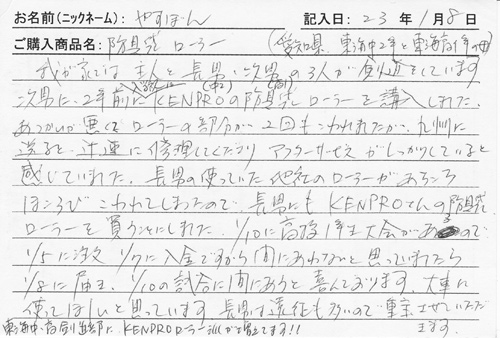 お名前(ニックネーム): やすぽん 記入日: 23年1月8日
ご購入商品名: 防具袋 ローラー (愛知県 東海中2年と東海高1年の母)
我が家では 主人と長男・次男の3人が剣道をしています
次男に、2年前に KENPROの防具袋ローラーを購入しました。
あつかいが悪くて ローラーの部分が 2回もこわれたが、九州に
送ると 迅速に修理してくださり アフターサービスがしっかりしていると
感じていました。長男の使っていた他社のローラーがあちこち
ほころび こわれてしまったので、長男にも KENPROさんの防具袋
ローラーを買うことにしました。1/10に高校1年生大会があるので
1/5に注文 1/7に入金ですから 間にあわないと思っていましたら
1/8に届き、1/10の試合に間にあうと喜んでおります。大事に
使ってほしいと思っています 長男は遠征も多いので重宝させていただ
きます。
東海中・高剣道部に、KENPROローラーが増えてます!!